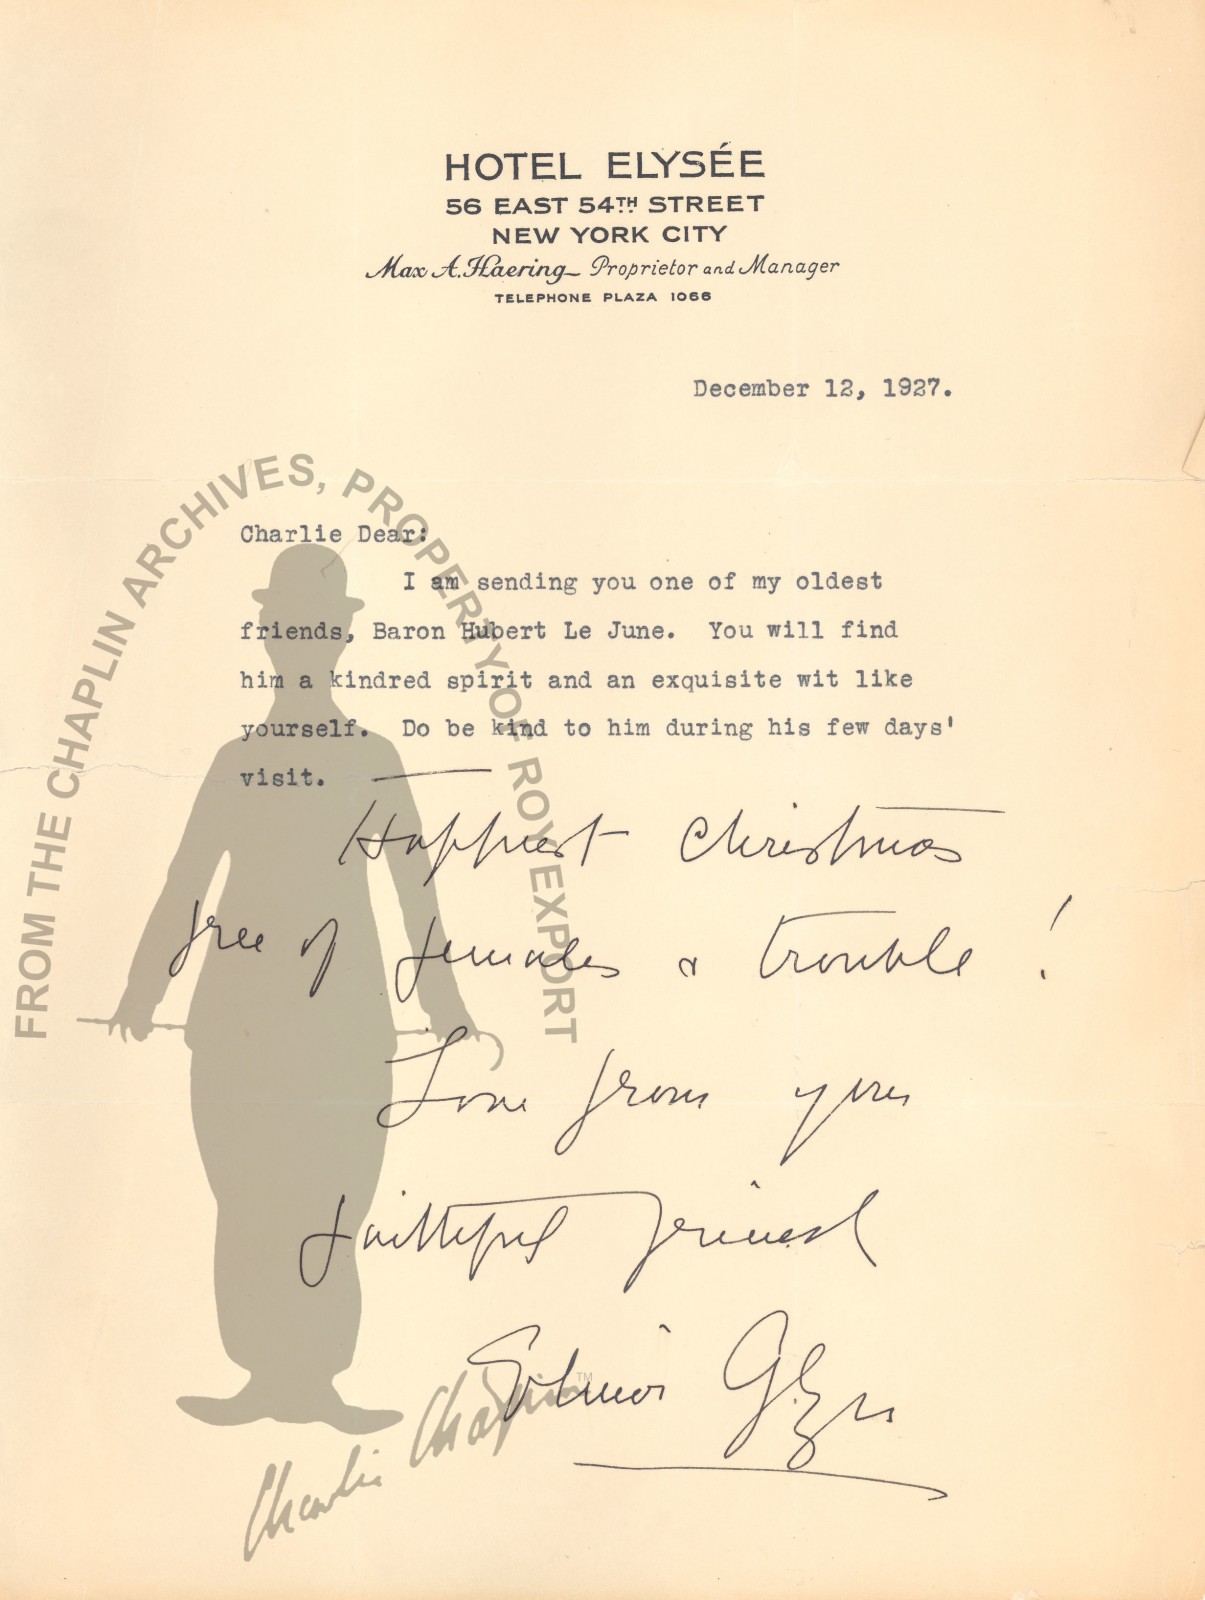 HOTEL ELYSÉE
56 EAST 54TH STREET
NEW YORK CITY
Max A. Haering Proprietor and Manager
TELEPHONE PLAZA 1066
December 12, 1927.
Charlie Dear:
I am sending you one of my oldest
friends, Baron Hubert Le June. You will find
him a kindred spirit and an exquisite wit like
yourself. Do be kind to him during his few days'
visit.
Happiest Christmas
free of females & trouble!
Love from your
faithful friend
Elinor Glyn
FROM THE CHAPLIN ARCHIVES, PROPERTY OF ROY EXPORT
Charlie Chaplin™